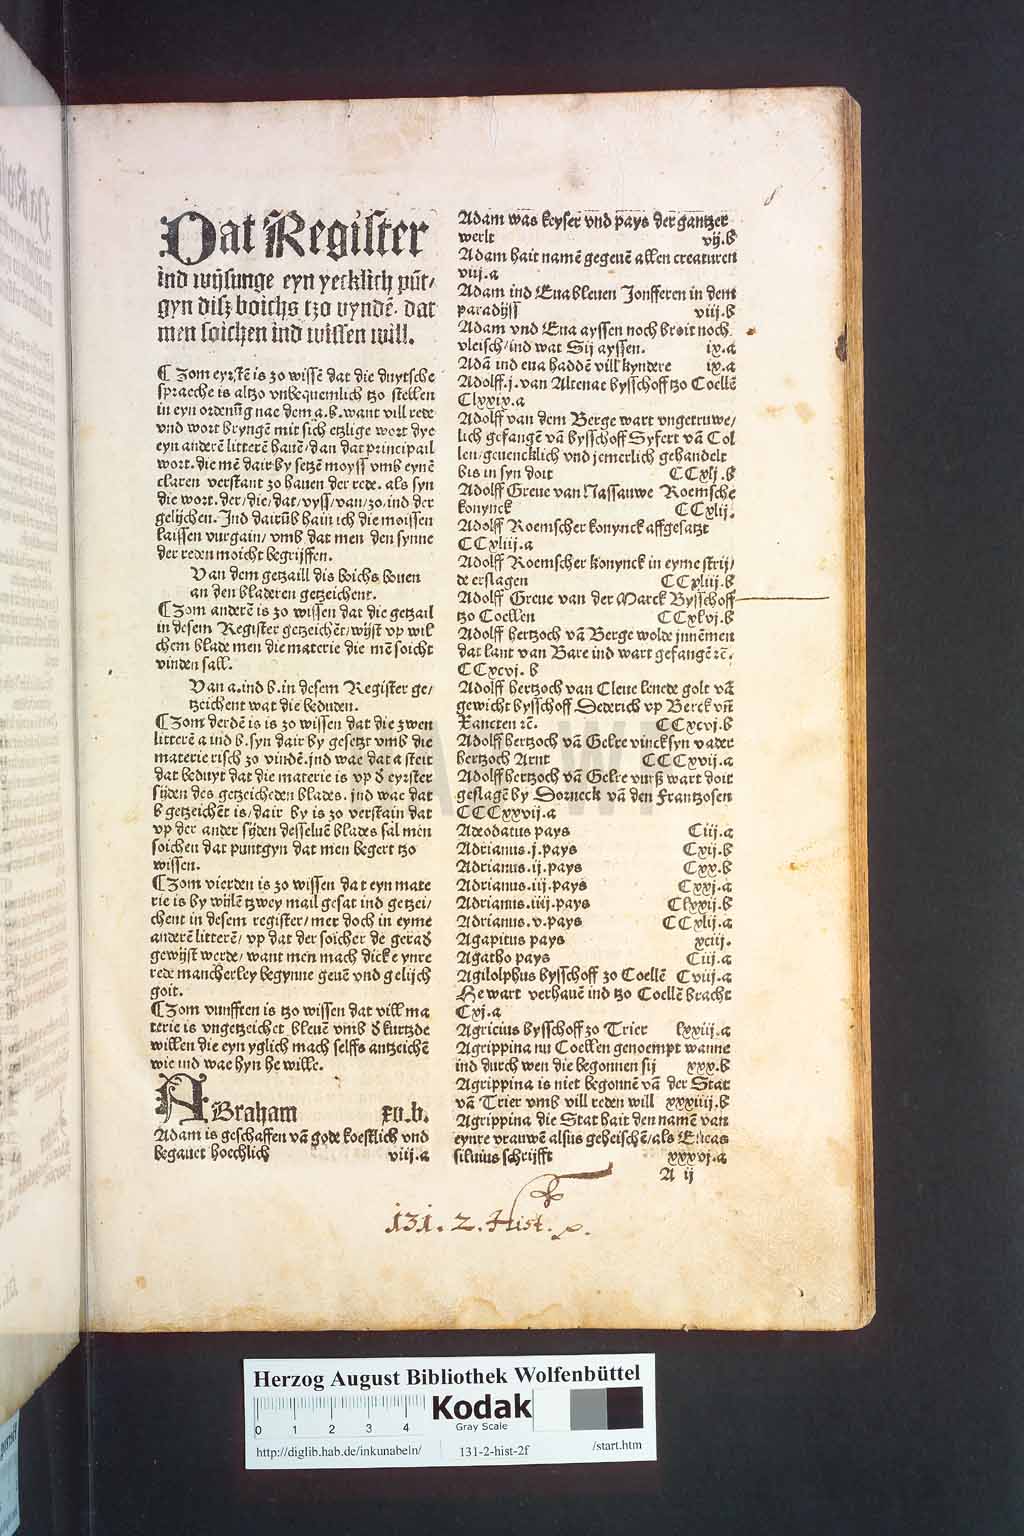 Dat Register
ind wijsunge eyn yecklich pūt/
gyn diſz boichs tzo vyndē. dat
men soicken ind wissen will.
¶ Zom eyrstē is zo wissē dat die duytsche
spraeche is altzo vnbequemlich tzo stellen
in eyn ordenūg nae dem a.b. want vill rede
vnd wort bryngē mit sich etzlige wort dye
eyn anderē litterē hauē/dan dat principail
wort. die mē dair by setzē moyss vmb eynē
claren verstant zo hauen der rede. als syn
die wort. der/die/dat/vyss/van/zo/ind der
gelijchen. Ind dairūb hain ich die moissen
laissen vurgain/ vmb dat men den synne
der reden moicht begrijffen.
Van dem getzaill dis boichs bouen
an den bladeren getzeichent.
¶ Zom anderē is zo wissen dat die getzail
in desem Register getzeichēt/wijst vp wil
chem blade men die materie die mē soicht
vinden sall.
Van a.ind b.in desem Register ge/
tzeichent wat die beduden.
¶ Zom derdē is is zo wissen dat die zwen
litterē a ind b.syn dair by gesetzt vmb die
materie risch zo vindē.jnd wae dat a steit
dat beduyt dat die materie is vp d eyrster
sijden des getzeicheden blades. jnd wae dat
b getzeichēt is/dair by is zo verstain dat
vp der ander sijden desseluē blades sal men
soichen dat puntgyn dat men begert tzo
wissen.
¶ Zom vierden is zo wissen dat eyn mate
rie is by wijlē tzwey mail gesat ind getzei/
chent in desem register/mer doch in eyme
anderē litterē/ vp dat der soicher de gerad
gewijst werde/want men mach dick eynre
rede mancherley begynne geuē vnd gelijch
goit.
¶ Zom vunfften is tzo wissen dat vill ma
terie is vngetzeichet bleuē vmb d kurtzde
willen die eyn yglich mach selffs antzeichē
wie ind wae hyn he wille.
ABraham xv.b.
Adam is geschaffen vā gode koestlich vnd
begauet hoechlich viij.a
Adam was keyser vnd pays der gantzer
werlt vij.b
Adam hait namē gegeuē allen creaturen
viij.a
Adam ind Eua bleuen Jonfferen in dem
paradijss viij.b
Adam vnd Eua ayssen noch broit noch
vleisch/ind wat Sij ayssen. ix.a
Adā ind eua haddē vill kyndere ix.a
Adolff.j. van Altenat bysschoff tzo Coellē
Clxxix.a
Adolff van dem Berge wart vngetruwe/
lich gefangē vā bysschoff Syfert vā Col
len/geuencklich vnd jemerlich gehandelt
bis in syn doit CCxlj.b
Adolff Greue van Nassauwe Roemsche
konynck CCxlij.
Adolff Roemscher konynck affgesatzt
CCxliij.a
Adolff Roemscher konynck in eyme strij/
de erslagen CCxliij.b
Adolff Greue van der Marck Bysschoff
tzo Coellen CCxlvj.b
Adolff hertzoch vā Berge wolde jnnēmen
dat lant van Bare ind wart gefangē ꝛc.
CCxcvj. b
Adolff hertzoch van Cleue lenede golt vā
gewicht bysschoff Dederich vp Berck vñ
Xancten ꝛc. CCxcvj.b
Adolff hertzoch vā Gelre vinck syn vader
hertzoch Arnt CCCxvij.a
Adolff hertzoch vā Gelre vurß wart doit
geslagē by Dorneck vā den Frantzosen
CCCxxvij.a
Adeodatus pays Ciij.a
Adrianus.j.pays Cxij.b
Adrianus.ij.pays Cxx.b
Adrianus.iij.pays Cxxj.a
Adrianus.iiij.pays Clxxij.b
Adrianus.v.pays CCxlij.a
Agapitus pays xciij.
Agatho pays Ciij.a
Agilolphus bysschoff zo Coellē Cviij.a
He wart verhauē ind tzo Coellē bracht
Cxj.a
Agricius bysschoff zo Trier lxxiij.a
Agrippina nu Coellen genoempt wanne
ind durch wen die begonnen sij xxx.b
Agrippina is niet begonnē vā der Stat
vā Trier vmb vill reden will xxxiiij.b
Agrippina die Stat hait den namē van
eynre vrauwē alsus geheischē/als Eneas
siluius schrijfft xxxvj.a
A ij
131. 2. Hist.
Herzog August Bibliothek Wolfenbüttel
0 1 2 3 4
Kodak
Gray Scale
http://diglib.hab.de/inkunabeln/ 131-2-hist-2f /start.htm